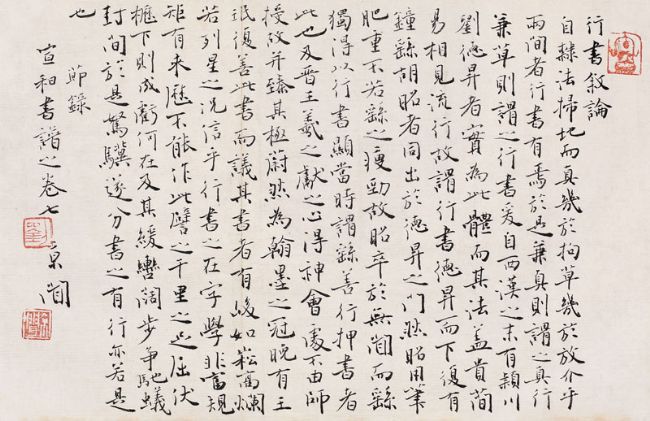 行書敘論
自隸法掃地而真幾於拘草幾於放介乎
兩間者行書有焉於是兼真則謂之真行
兼草則謂之行書爰自西漢之末有穎川
劉德昇者實為此體而其法蓋貴簡
易相見流行故謂行書德昇而下復有
鐘繇胡昭者同出於德昇之門然昭用筆
肥重不若繇之瘦勁故昭卒於無聞而繇
獨得以行書顯當時謂繇善行押書者
此也及晉王羲之獻之心得神會處不由師
授故并臻其極蔚然為翰墨之冠晚有王
珉復善此書而議其書者有峻如崧高爛
若列星之況信乎行書之在字學非富規
矩有來歷不能作此譬之千里之足屈伏
櫪下則成虧何在及其緩轡闊步爭馳蟻
封間於是駑驥遂分書之有行亦若是
也
節錄
宣和書譜之卷七